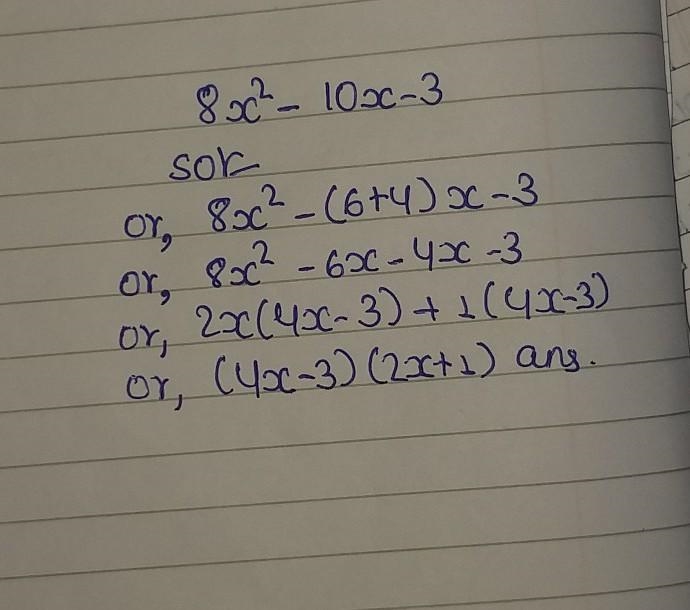 8x² - 10x - 3
soln
or, 8x² - (6+4) x - 3
or, 8x² - 6x - 4x - 3
or, 2x(4x - 3) + 1 (4x-3)
or, (4x-3) (2x+1) ans.